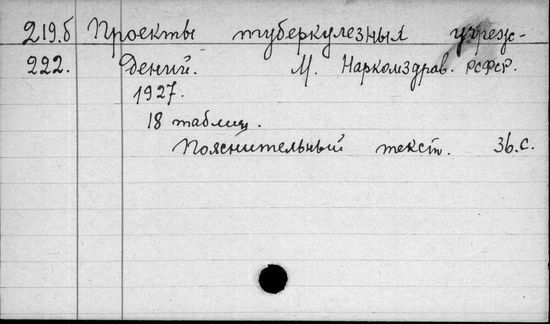 219.б Проекты туберкулезных учреж-
222. дений. М. Наркомздрав. РСФСР.
1927.
18 таблиц.
Пояснительный текст. 36.с.